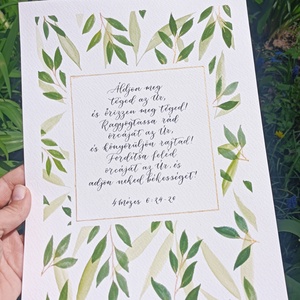 Áldjon meg
téged az Úr,
és őrizzen meg téged!
Ragyogtassa rád
orcáját az Úr,
és könyörüljön rajtad!
Fordítsa feléd
orcáját az Úr, és
adjon neked békességet!
4 Mózes 6:24-26